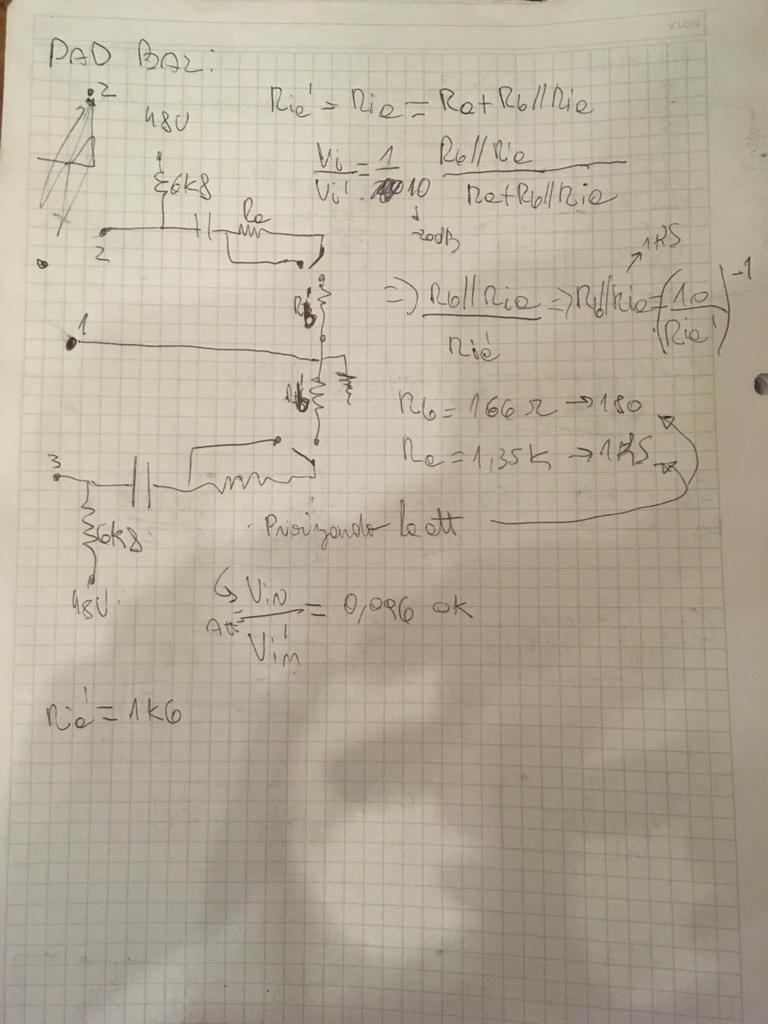 PAD BAL:
2
48V
6k8
Ra
2
1
Rb
Rb
3
6k8
48V
Ria' = Ria = Ra + Rb // Ria
Vi / Vi' = 1 / 10 Rb // Ria / Ra + Rb // Ria
-20dB
1k5
=> Rb // Ria / Ria' => Rb // Ria = (10 / Ria')^-1
Rb = 166 Ω → 180
Ra = 1,35k → 1k5
Priorizando la att
Att = Vin / Vin' = 0,096 ok
Ria' = 1k6